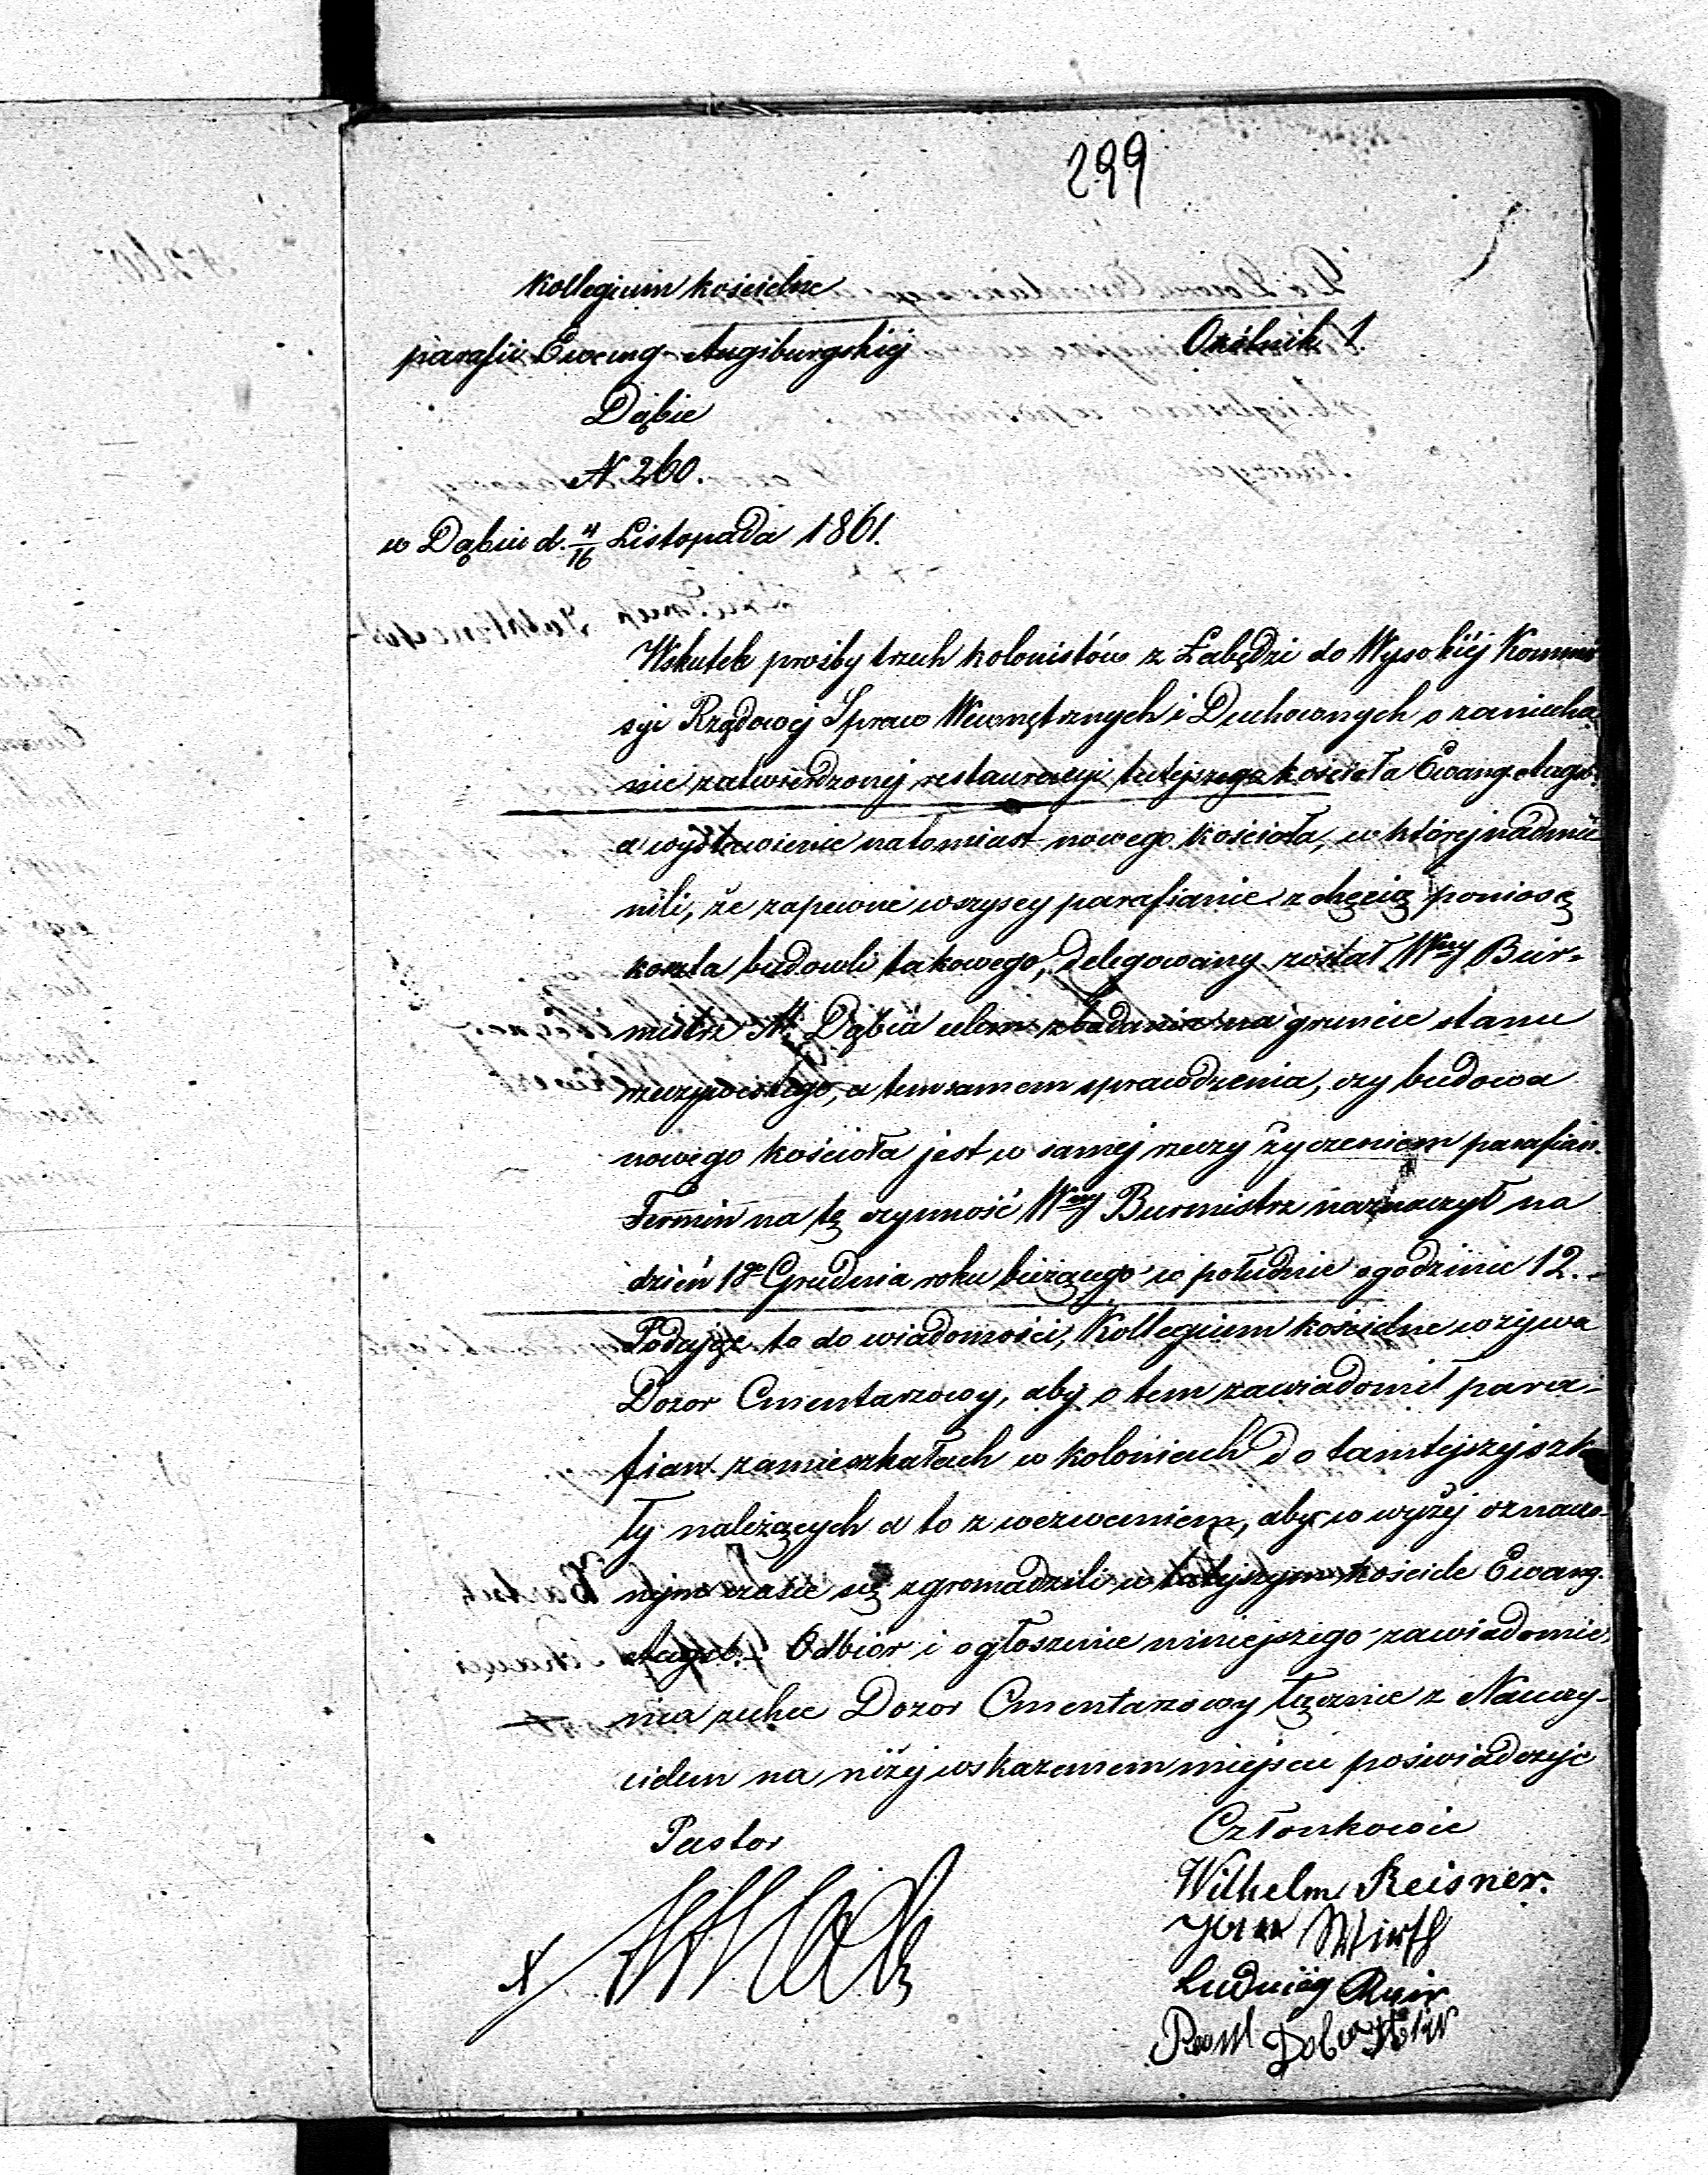 299
Kollegium kościelne
parafii Ewang-Augsburgskiej
Okólnik 1.
Dąbie
N 260.
w Dąbiu d. 4/16 Listopada 1861.
Wskutek prośby trzech kolonistów z Łabędzi do Wysokiéj Kommis
syi Rządowej Spraw Wewnętrznych i Duchownych o zaniecha
nie zatwierdzonej restauracyi tutejszego kościoła Ewang. Augsb.
a wystawienie natomiast nowego kościoła, w której nadmie
nili, że zapewne wszyscy parafianie z chęcią poniosą
koszta budowli takowego, Delegowany został Wny Bur-
mistrz M. Dąbia celem zbadania na gruncie stanu
rzeczywistego, a temsamem sprawdzenia, czy budowa
nowego kościoła jest w samej rzeczy życzeniem parafian.
Termin na tę czynność Wny Burmistrz naznaczył na
dzień 1go Grudnia roku bieżącego w południe o godzinie 12.
Podając to do wiadomości, Kollegium kościelne wzywa
Dozor Cmentarzowy, aby o tem zawiadomił para-
fian zamieszkałych w koloniach do tamtejszej szko
ły należących a to z wezwaniem, aby w wyżej oznaczo-
nym czasie się zgromadzili w tutejszym kościele Ewang.
Augsb. Odbiór i ogłoszenie niniejszego zawiadomie
nia zechce Dozor Cmentarzowy łącznie z Nauczy-
cielem na niżej wskazanem miejscu poświadczyć
Pastor
Członkowie
Wilhelm Reisner.
Wirth
Ludwig